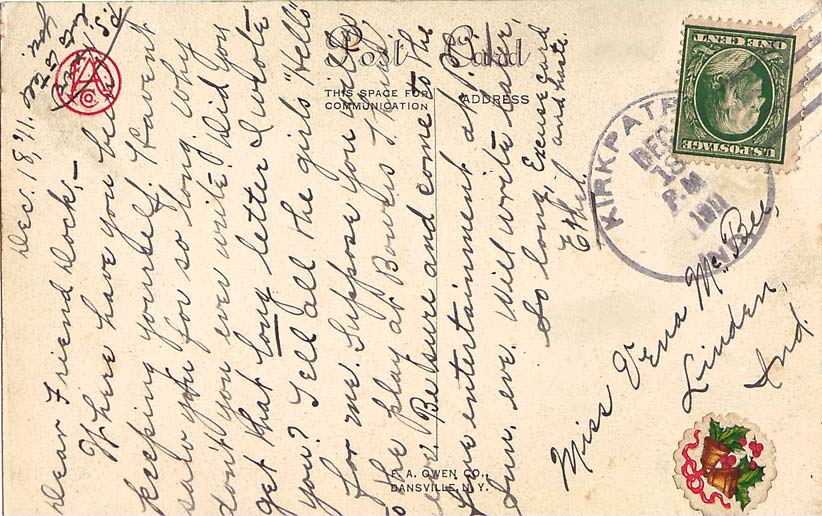 Post Card
THIS SPACE FOR
COMMUNICATION
ADDRESS
Dec. 18, '11.
Dear Friend Dock,-
Where have you been
keeping yourself. Havent
saw you for so long. Why
don't you ever write. Did you
get that long letter I wrote
you? Tell all the girls "Hello"
for me. Suppose you will go
to the play at Bowers Thurs.
eve. Be sure and come to the
Xmas entertainment at
Sun. eve. Will write later,
So long, Excuse card
and haste.
Ethel.
P.S.
lots to tell
you.
Miss Vena McBee,
Linden,
Ind.
KIRKPATRICK
DEC
18
P.M
1911
IND.
U.S. POSTAGE
ONE CENT
F. A. OWEN CO.,
DANSVILLE, N. Y.